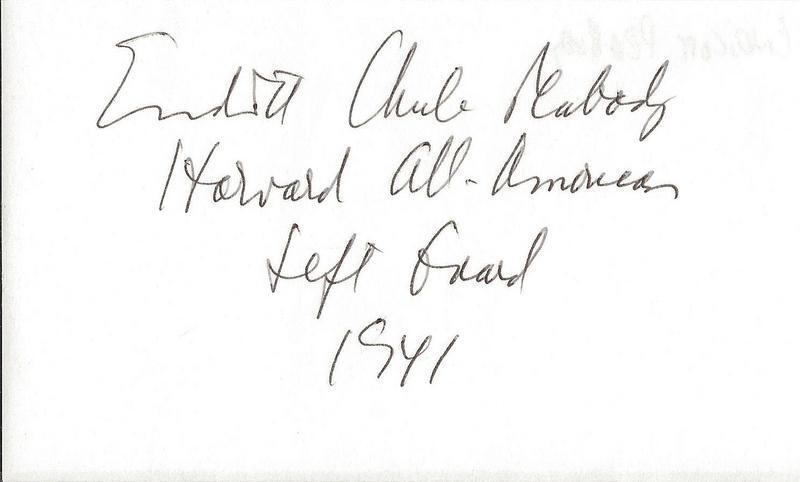 Endicott Chub Peabody
Harvard All-American
Left Guard
1941